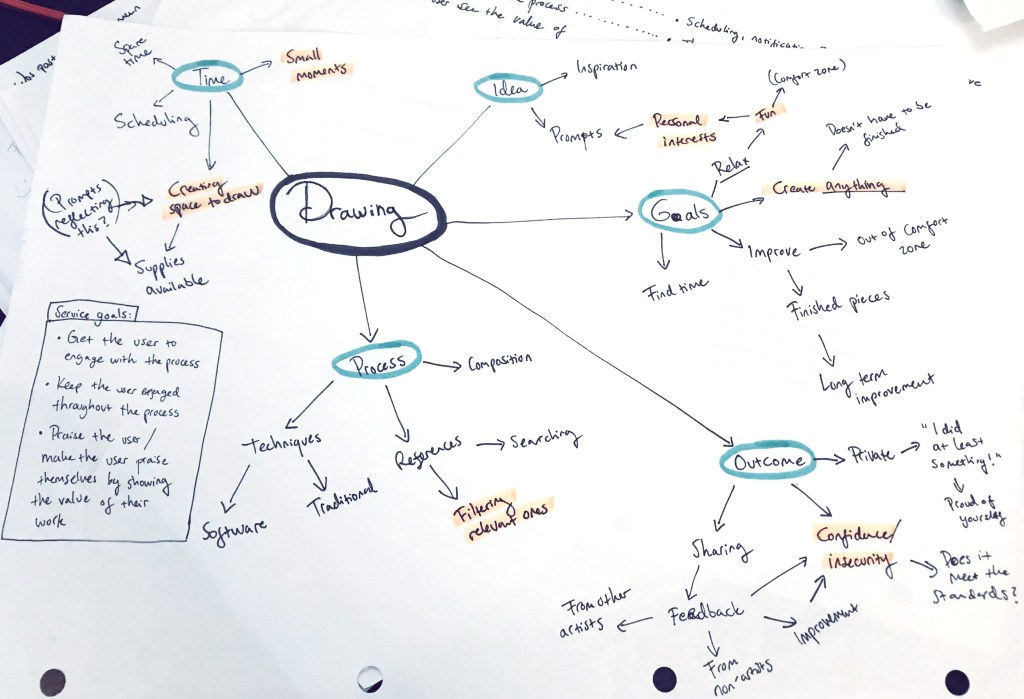 process
user see the value of
• Scheduling, notification
Spare
time
Time
Small
moments
Scheduling
Creating
space to draw
(Prompts
reflecting
this?)
Supplies
available
Idea
Inspiration
Prompts
Personal
interests
Fun
(Comfort zone)
Relax
Drawing
Goals
Create anything
Doesn't have to be
finished
Improve
Out of comfort
zone
Find time
Finished pieces
Long term
improvement
Service goals:
• Get the user to
engage with the process
• Keep the user engaged
throughout the process
• Praise the user/
make the user praise
themselves by showing
the value of their
work
Process
Composition
Techniques
Software
Traditional
References
Searching
Filtering
relevant ones
Outcome
Private
"I did
at least
something!"
Proud of
yourself
Sharing
Confidence/
insecurity
Does it
meet the
standards?
Feedback
From other
artists
From
non-artists
Improvement